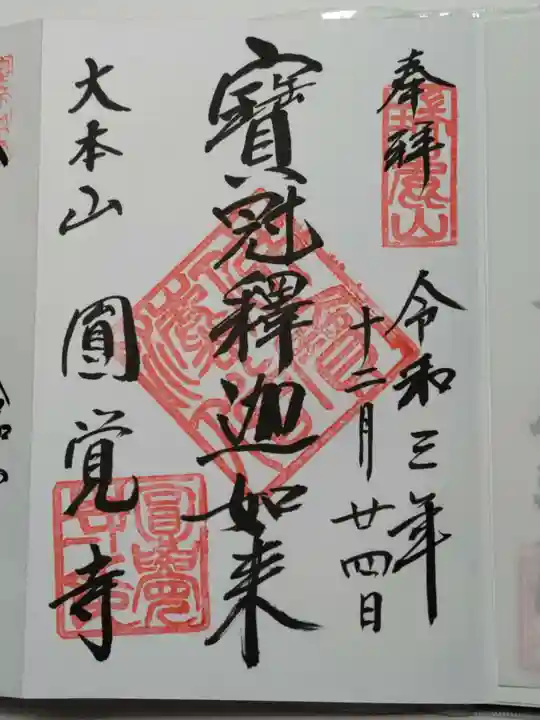 奉拝
令和三年
十二月廿四日
寶冠釋迦如来
大本山 圓覚寺